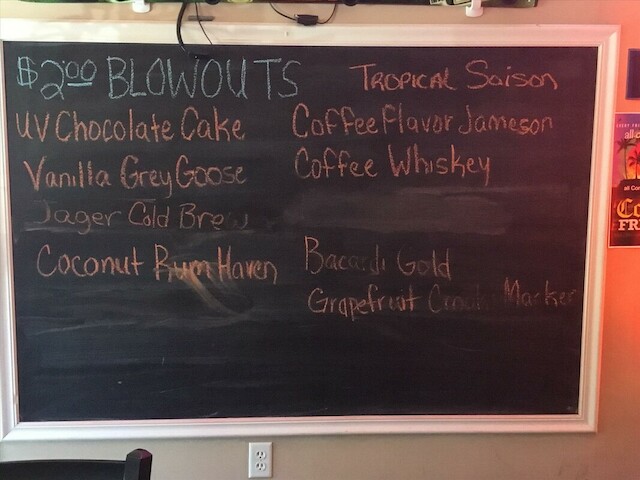 $2.00 BLOWOUTS
TROPICAL Saison
UV Chocolate Cake
Coffee Flavor Jameson
Vanilla Grey Goose
Coffee Whiskey
Jager Cold Brew
Coconut Rum Haven
Bacardi Gold
Grapefruit Marker